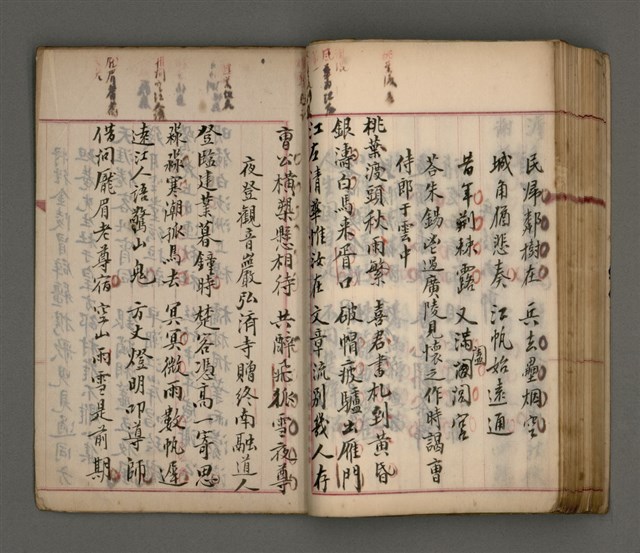 民歸鄰樹在 兵去壘烟空
城角眉悲奏 江帆始遠通
昔年荆棘露 又滿闔閭宮
荅朱錫鬯過廣陵見懷之作時謁曹
侍郎于雲中
桃葉渡頭秋雨繁 喜君書札到黄昏
銀濤白馬来胥口 破帽疲驢出雁門
江左清華惟汝在 文章流别幾人存
曹公橫槊懸相待 共醉飛狐雪夜尊
夜登觀音巖弘濟寺贈終南融道人
登臨建業暮鐘時 楚客憑高一寄思
淼淼寒潮掀馬去 冥冥微雨數帆遲
遶江人语驚山鬼 方丈燈明叩導師
借问厖眉老尊宿 空山雨雪是前期